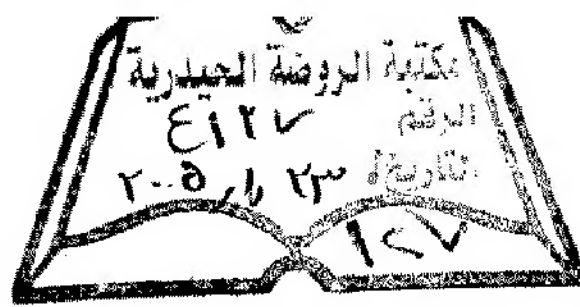 مكتبة الروضة الحيدرية
الرقم ٤١٢٧
التاريخ ٢٣ / ١ / ٢٠٠٥
١٢٧